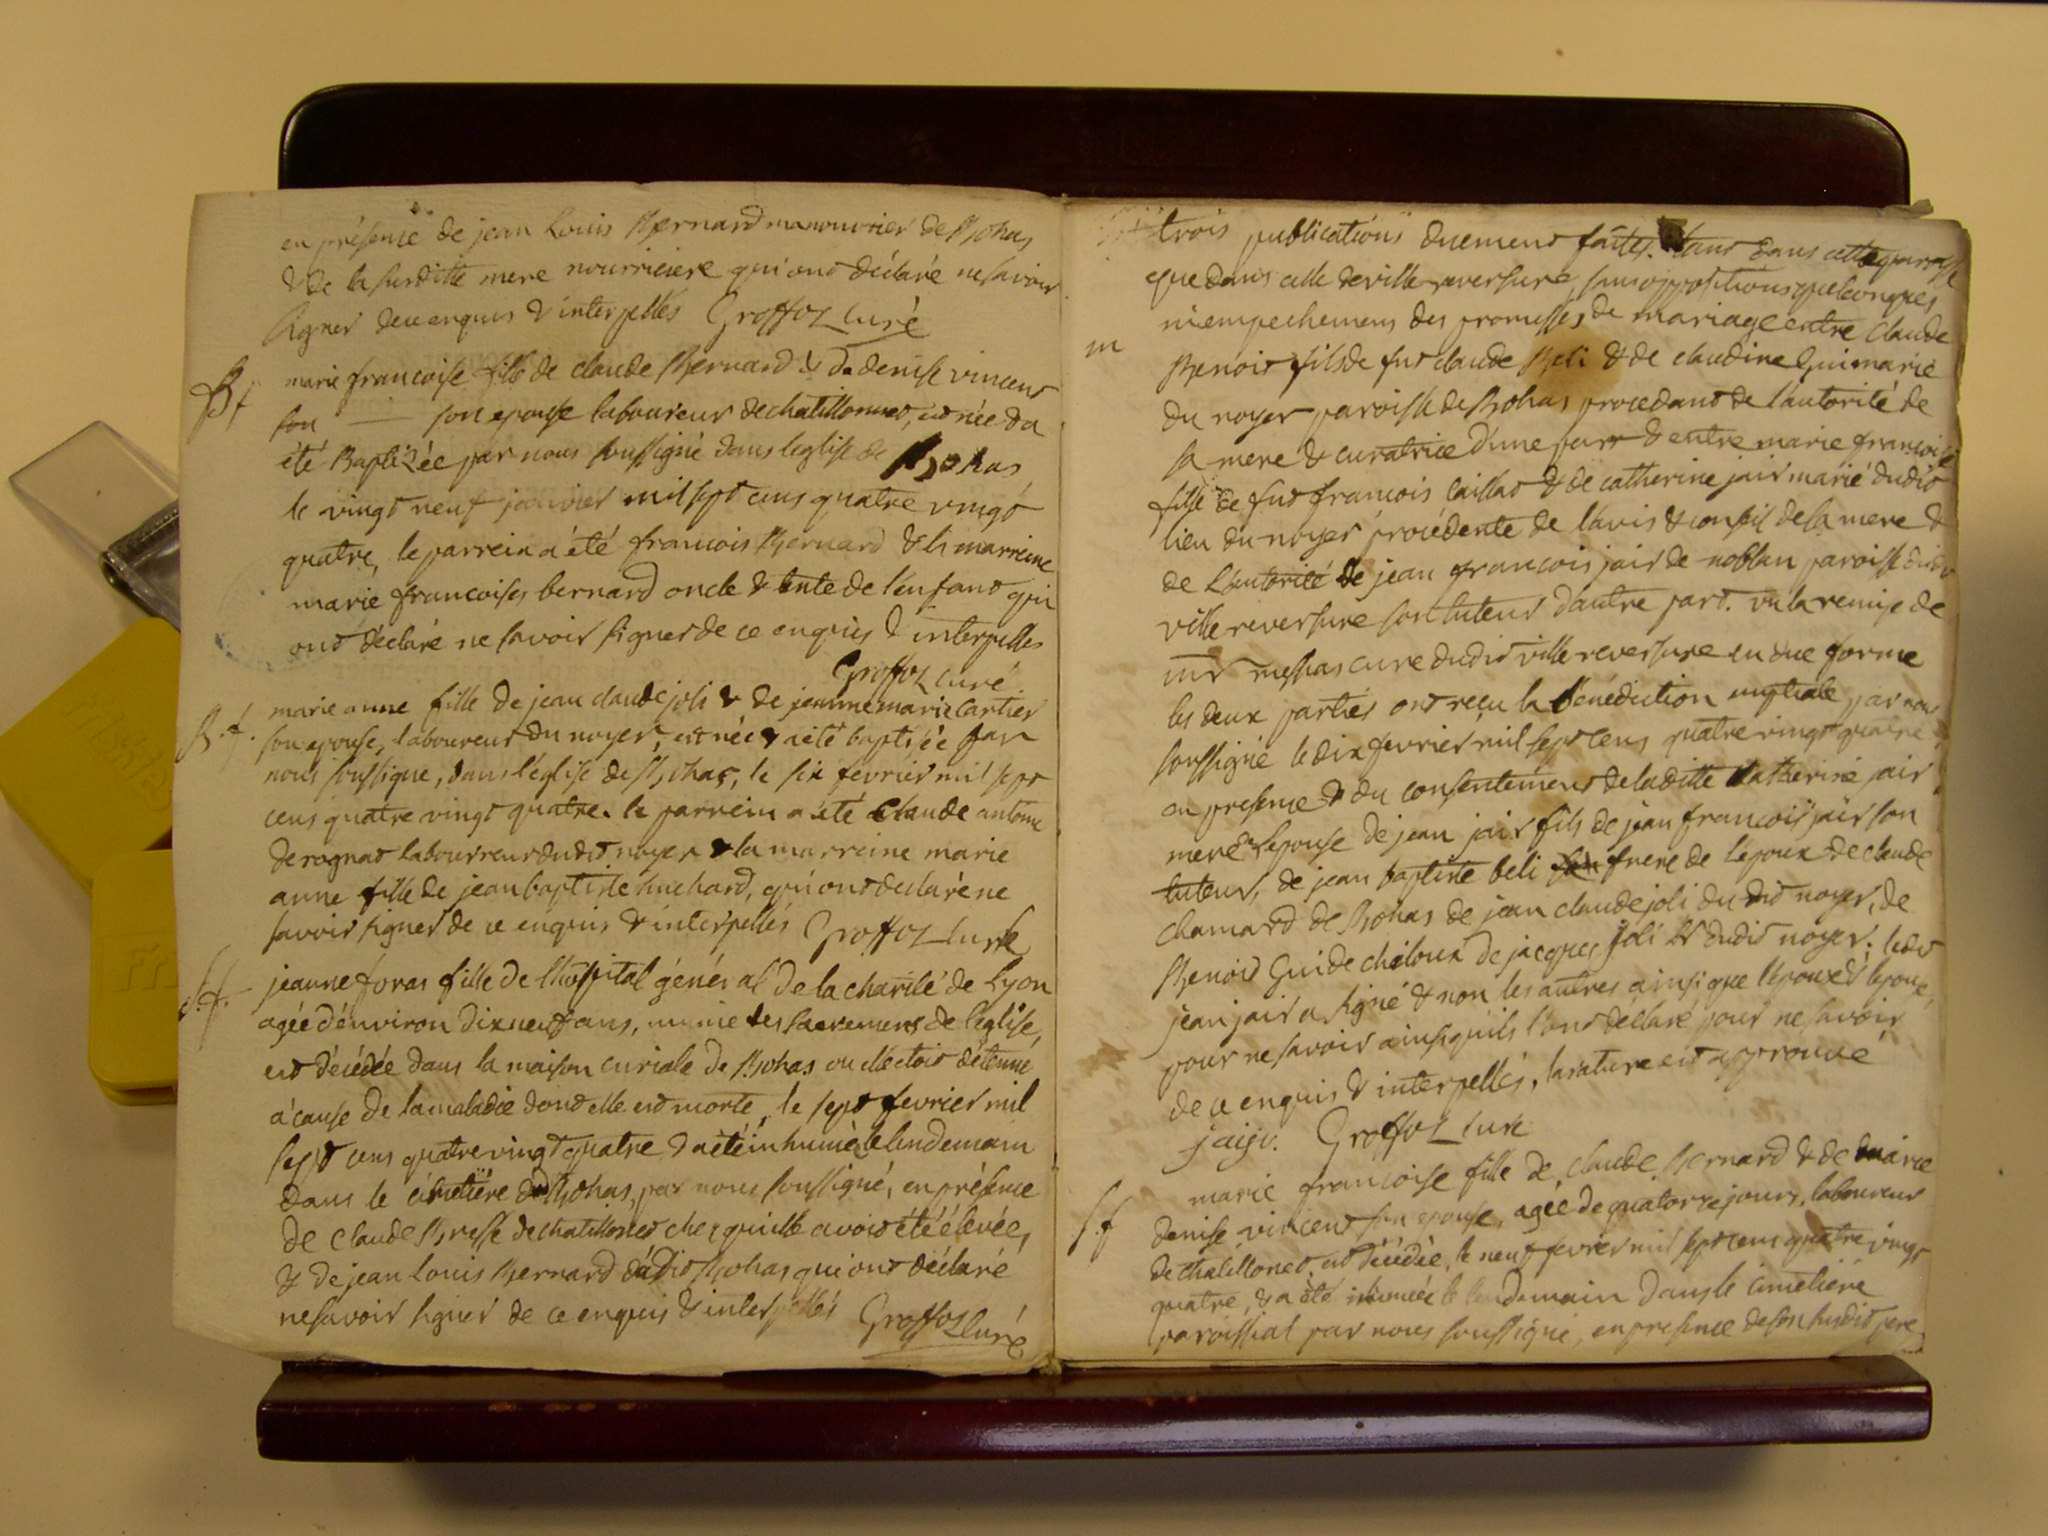 en présence de jean Louis Bernard manouvrier de Bohas
& de la susditte mere nourriciere qui ont déclaré ne savoir
signer de ce enquis & interpellés Groffoz curé
B f
marie francoise fille de claude Bernard & de denise vincent
son — son epouse laboureur de chatillonnet, est née & a
été Baptizée par nous soussigné dans l'eglise de Bohas
le vingt neuf janvier mil sept cens quatre vingt
quatre, le parrein a été francois Bernard & la marreine
marie francoises bernard oncle & tente de l'enfant qui
ont déclaré ne savoir signer de ce enquies & interpellés
Groffoz curé
B. f.
marie anne fille de jean claude joli & de jeanne marie Cartier
son epouse, laboureur du noyer, est née & a été baptisée par
nous soussigné, dans l'église de Bohas, le six fevrier mil sept
cens quatre vingt quatre. le parrein a été Claude antoine
derognat labourreur dudit noyer & la marreine marie
anne fille de jean baptiste huchard, qui ont declaré ne
savoir signer de ce enquis & interpellés Groffoz curé
S. f.
jeanne foras fille de l'hospital général de la charité de Lyon
agée d'environ dix neuf ans, munie des sacremens de l'église,
est décédée dans la maison curiale de Bohas ou elle etoit détenue
a cause de la maladie dont elle est morte, le sept fevrier mil
sept cens quatre vingt quatre & a été inhumée le lendemain
dans le cimetiére de Bohas, par nous soussigné, en présence
de claude Bresse de chatillonet chez qui elle avoit été élevée,
& de jean louis Bernard dudit Bohas qui ont déclaré
ne savoir signer de ce enquis & interpellés Groffoz curé
trois publications duement faites tant dans cette paroisse
que dans celle de ville reversure, sans oppositions quelconques
ni empechemens des promesses de mariage entre claude
m
Benoit fils de fut claude Beli & de claudine Gui marié
du noyer paroisse de Bohas procedant de l'autorité de
sa mere & curatrice d'une part & entre marie francoise
fille de fut francois caillat & de catherine jair marié dudit
lieu du noyer procédente de l'avis & conseil de sa mere &
de L'autorité de jean francois jair de noblan paroisse dudit
ville reversure son tuteur d'autre part. vu la remise de
mr curé dudit ville reversure en due forme
les deux parties ont reçu la Bénédiction nuptiale par nous
soussigné le dix fevrier mil sept cens quatre vingt quatre
en presence & du consentement de laditte Catherine jair
mere de l'epouse de jean jair fils de jean francois jair son
tuteur, de jean baptiste beli frere de l'epoux de claude
chamard de Bohas de jean claude joli dudit noyer, de
Benoit Gui de chiloux de jacques joli dudit noyer. ledit
jean jair a signé & non les autres ainsi que l'epoux & l'epouse
pour ne savoir ainsi qu'ils l'ont déclaré pour ne savoir
de ce enquis & interpellés, la rature est approuvé
Groffoz curé
S. f
marie francoise fille de claude Bernard & de marie
denise vincent son epouse, agée de quatorze jours, laboureur
de chatillonet, est décédée, le neuf fevrier mil sept cens quatre vingt
quatre, & a été inhumée le lendemain dans le cimetiére
paroissial par nous soussigné, en presence de son susdit pere